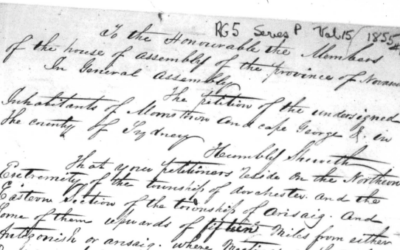 RG5 Series P Vol 15 1855
To the Honourable the Members
of the house of Assembly of the province of Nova
In General Assembly
The petition of the undersigned
Inhabitants of Morristown and cape George &c in
The county of Sydney
Humbly Sheweth
That your petitioners reside on the Northern
Extremity of the township of dorchester and the
Eastern Section of the township of Arisaig. And
Some of them upwards of fifteen Miles from either
Antigonish or arisaig. where